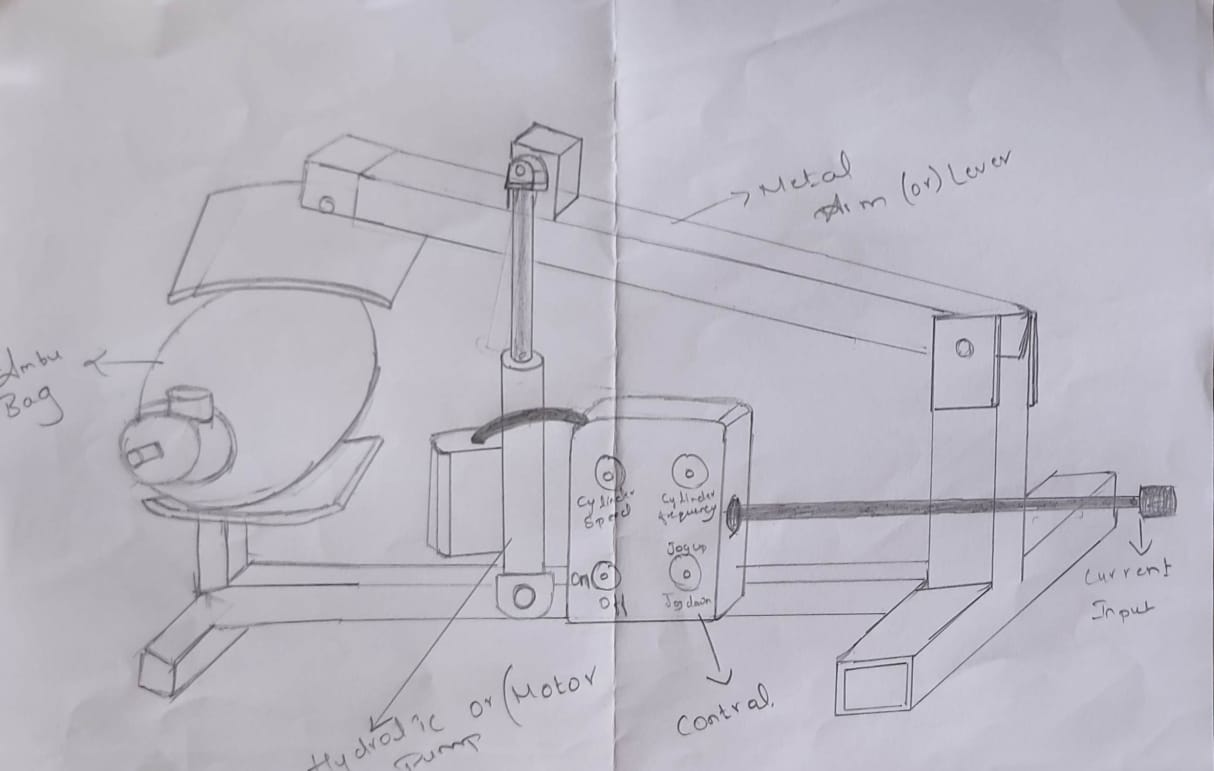 Metal
Arm (or) Lever
Ambu
Bag
Cylinder
Speed
Cylinder
frequency
On
Off
Jog up
Jog down
Current
Input
Hydrolic or (Motor
Pump
Control.